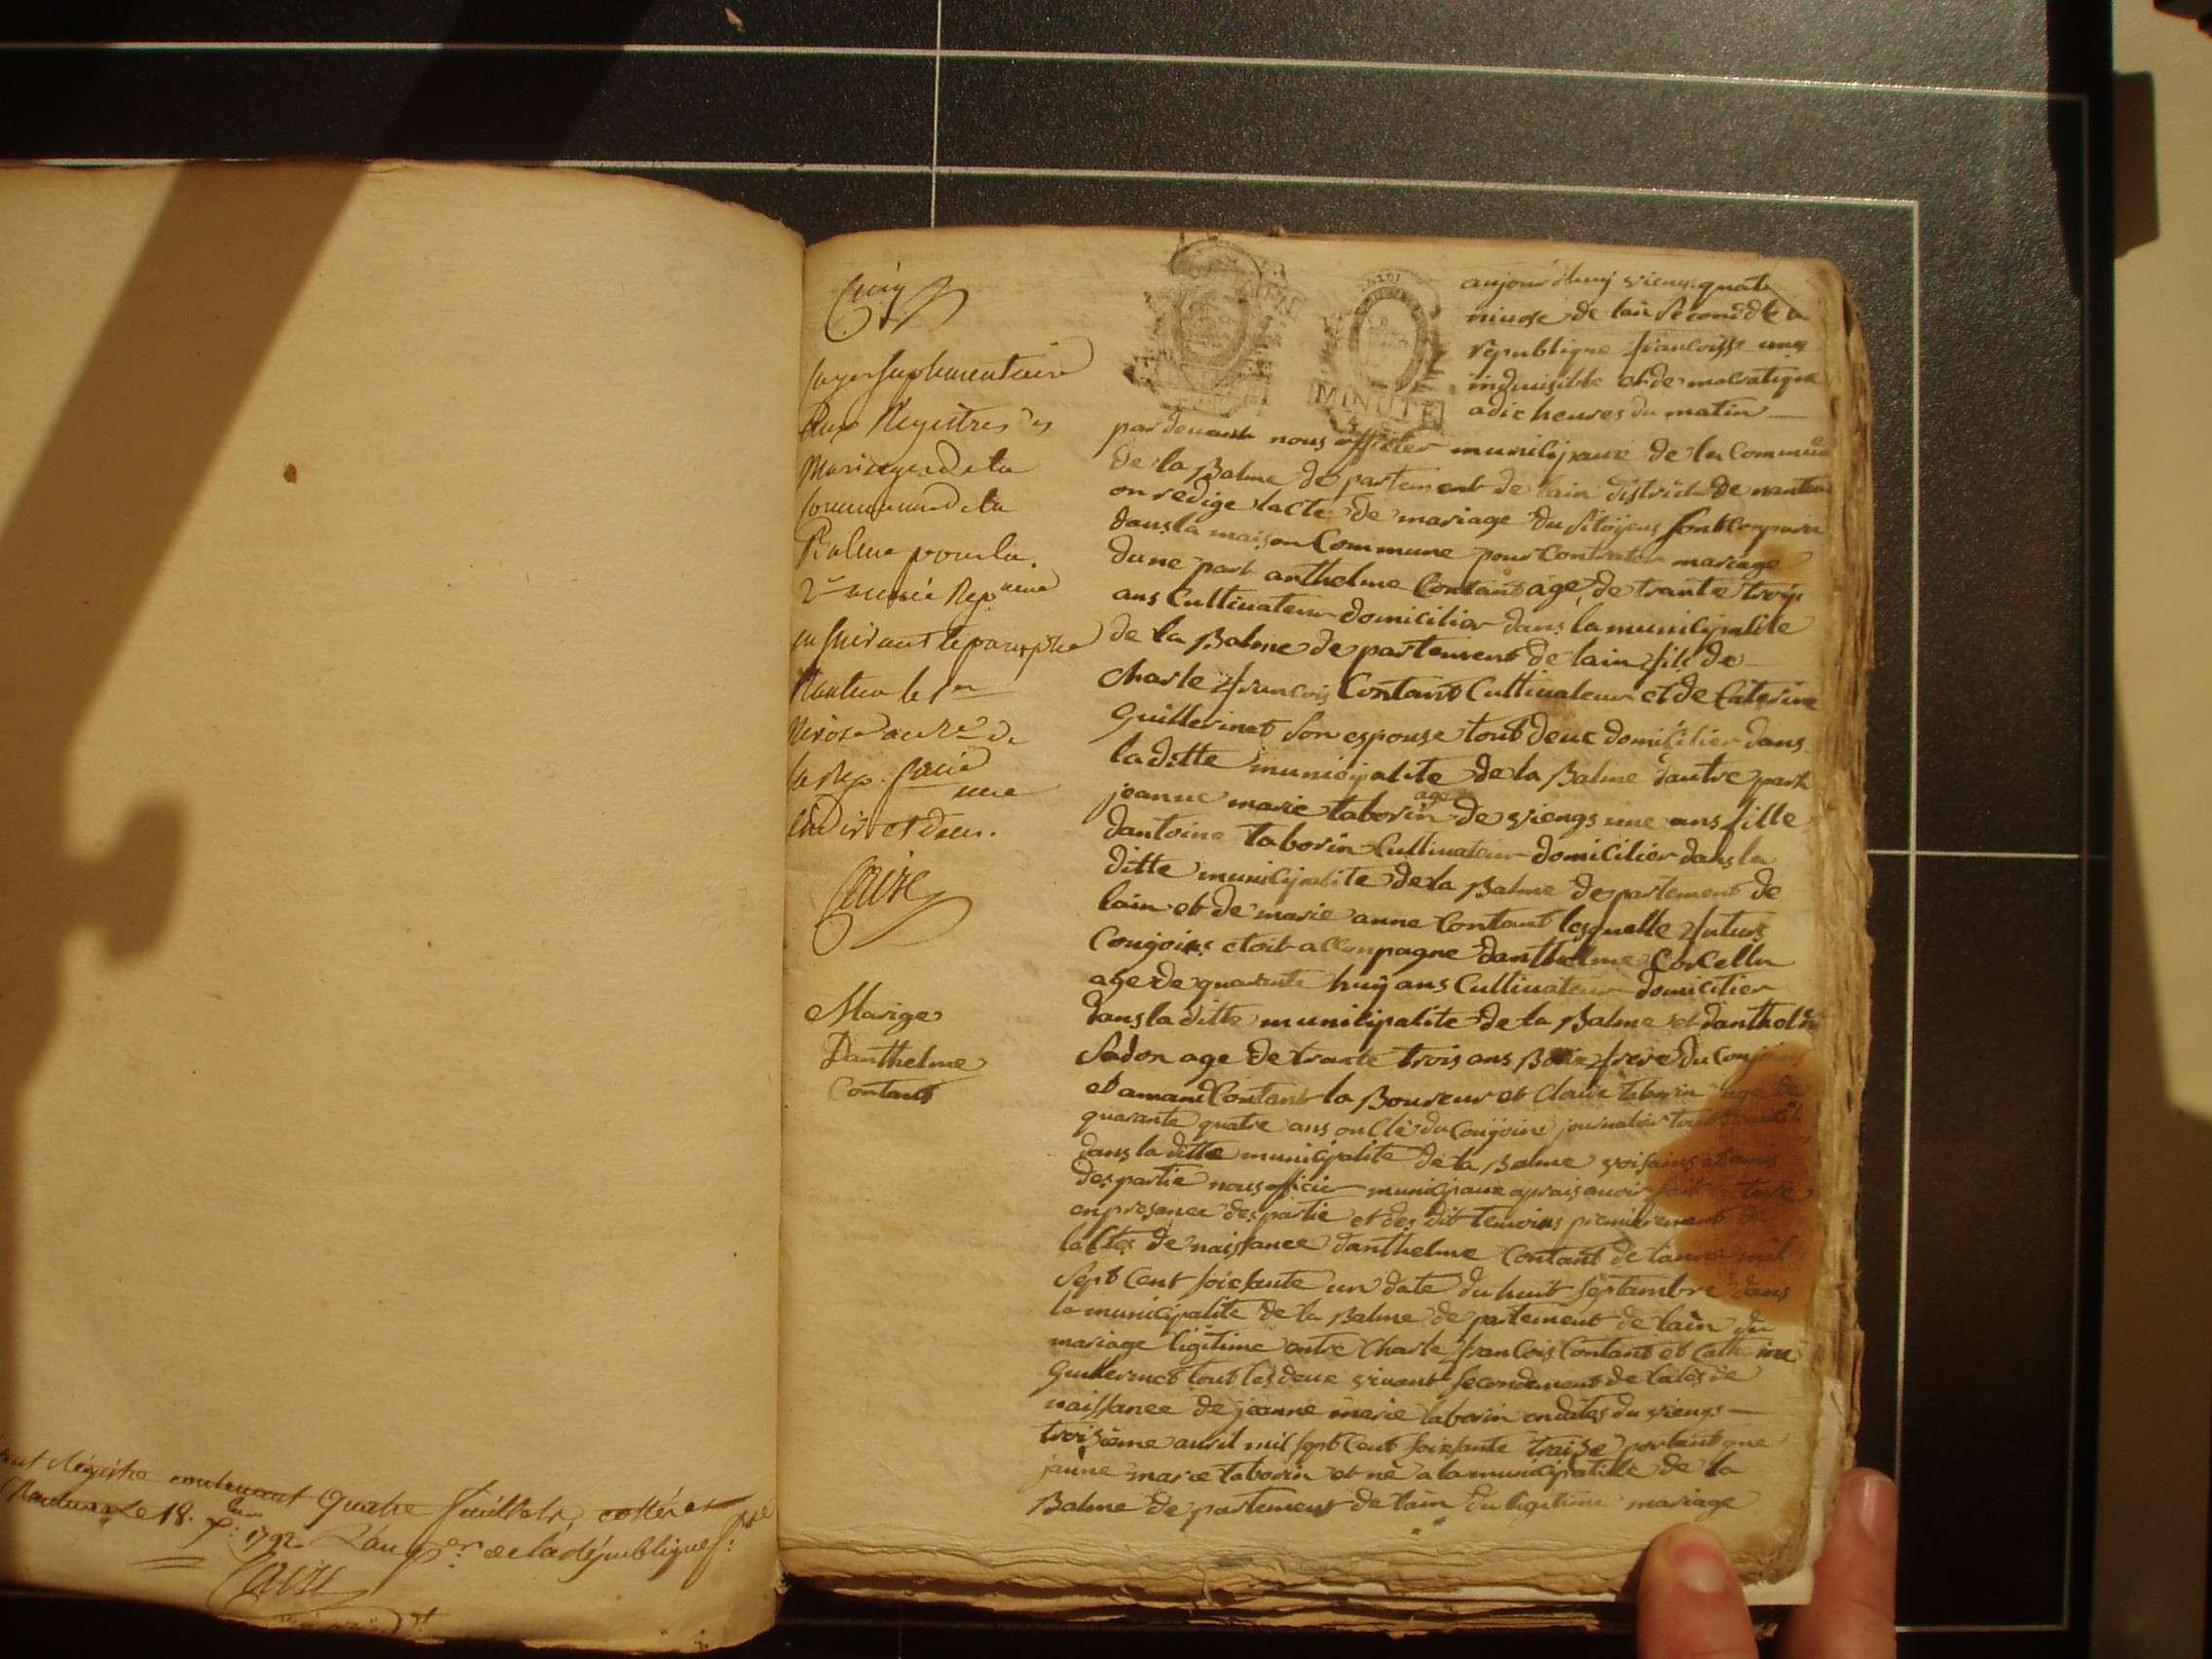 registre contenant quatre feuillets, cottés et
Nantua Le 18. Xbre 1792. L'an 1er de la république f:se
Cuiny
page suplementaire
aux Registres des
Mariages de la
commune de la
Balme pour la
2e année Repne
en suivant le paraphe
Nantua le 1er
Nivose an 2e de
la Rep. francaise
une
indiv et dem.
Mariage
Danthelme
Contant
MINUTE
aujourdhuy viengt quatre
nivose de lan second de la
republique francoisse une
indivisible et democratique
a dic heures du matin
par devant nous officier municipaux de la commune
de la Balme departement de lain district de nantua
on redige lacte de mariage du sitoyens sont comparu
dans la maison Commune pour contrater mariage
dune part anthelme Contant age de trante trois
ans Cultivateur domicilier dans la municipalite
de la Balme departement de lain fils de
charle francois Contant Cultivateur et de Caterine
Guillerinet son espouse tout deux domicilier dans
la ditte municipalite de la Balme dautre part
jeanne marie taborin age de viengs une ans fille
dantoine taborin Cultivateur domicilier dans la
ditte municipalite de la Balme departement de
lain et de marie anne Contant lesquelle futurs
Conjoins etoit accompagne danthelme Corcellu
age de quarante huy ans Cultivateur domicilier
dans la ditte municipalite de la Balme et danthelme
Sadon age de trante trois ans Bau frere du Conjoins
et amand Contant la Boureur et claude taborin age de
quarante quatre ans oncle du Conjoins journalier tout
dans la ditte municipalite de la Balme voisains et amis
des partie nous officier municipaux aprais avoir fait lecture
en presance des partie et des dit temoins premierement de
lactes de naissance danthelme Contant de lanne mil
sept Cent soicsante un date du huit septambre dans
la municipalite de la Balme departement de lain du
mariage ligitime entre Charle francois Contant et Catherine
Guillerinet tout les deux vivant secondement de lactes de
naissance de jeanne marie taborin en dates du viengs
troisieme avril mil sept Cent soixsante traise portant que
janne marie taborin et ne a la municipalitte de la
Balme departement de lain du ligitime mariage